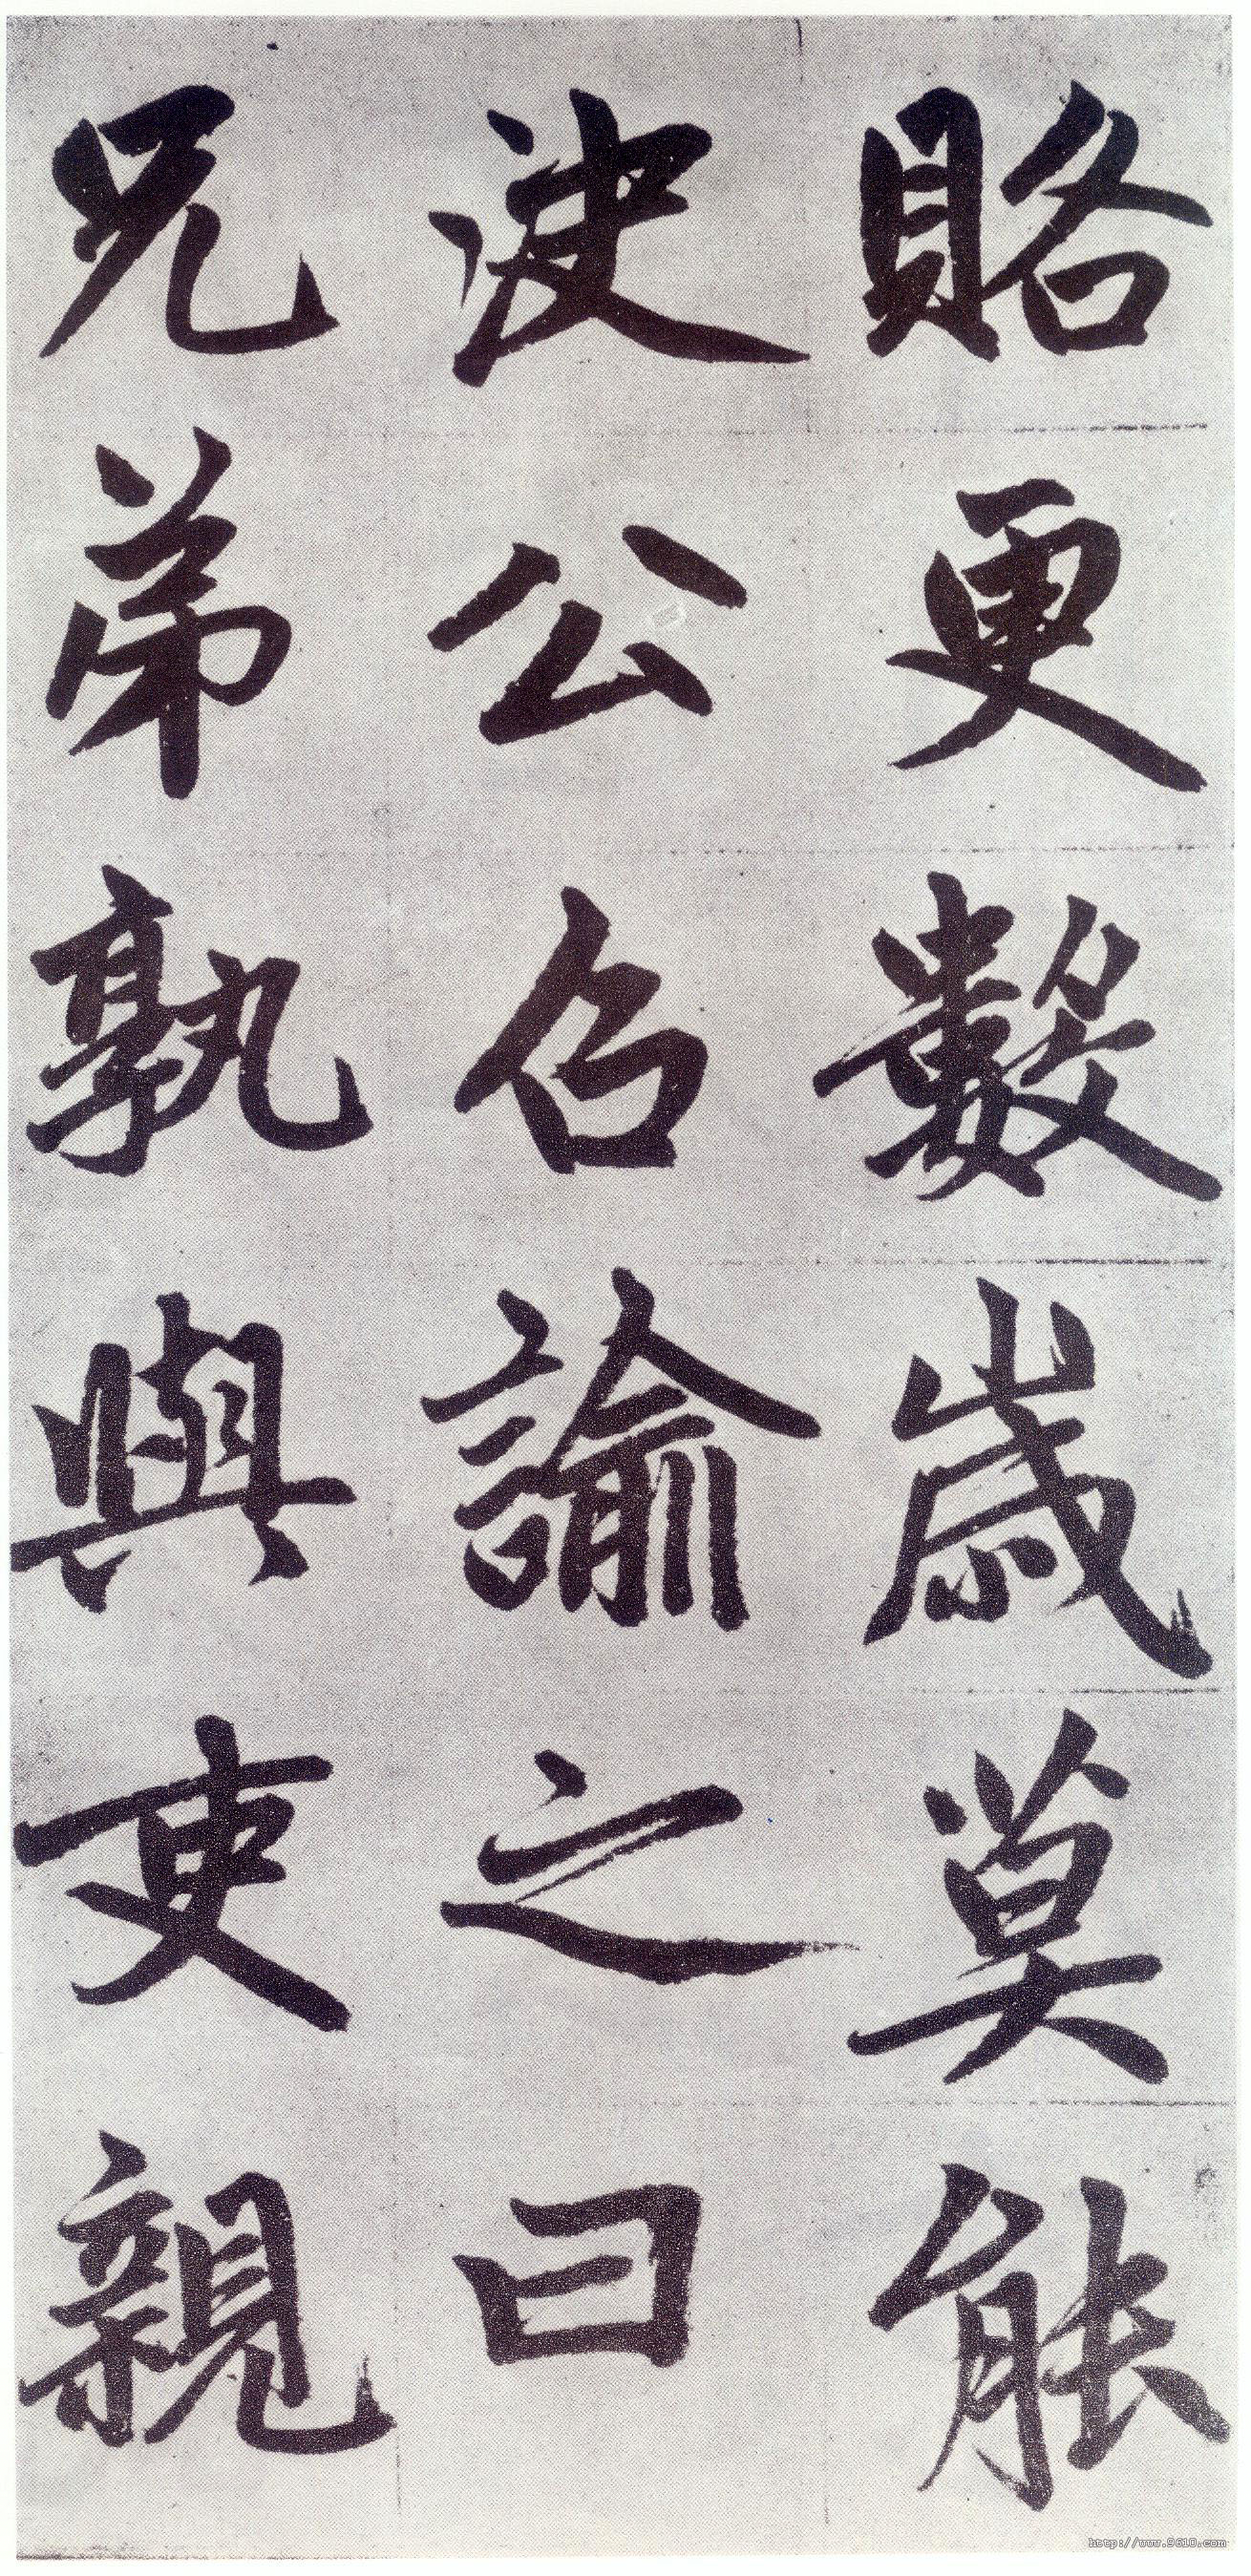 賂更數歲莫能
決公召諭之曰
兄弟孰與吏親
http://www.9610.com